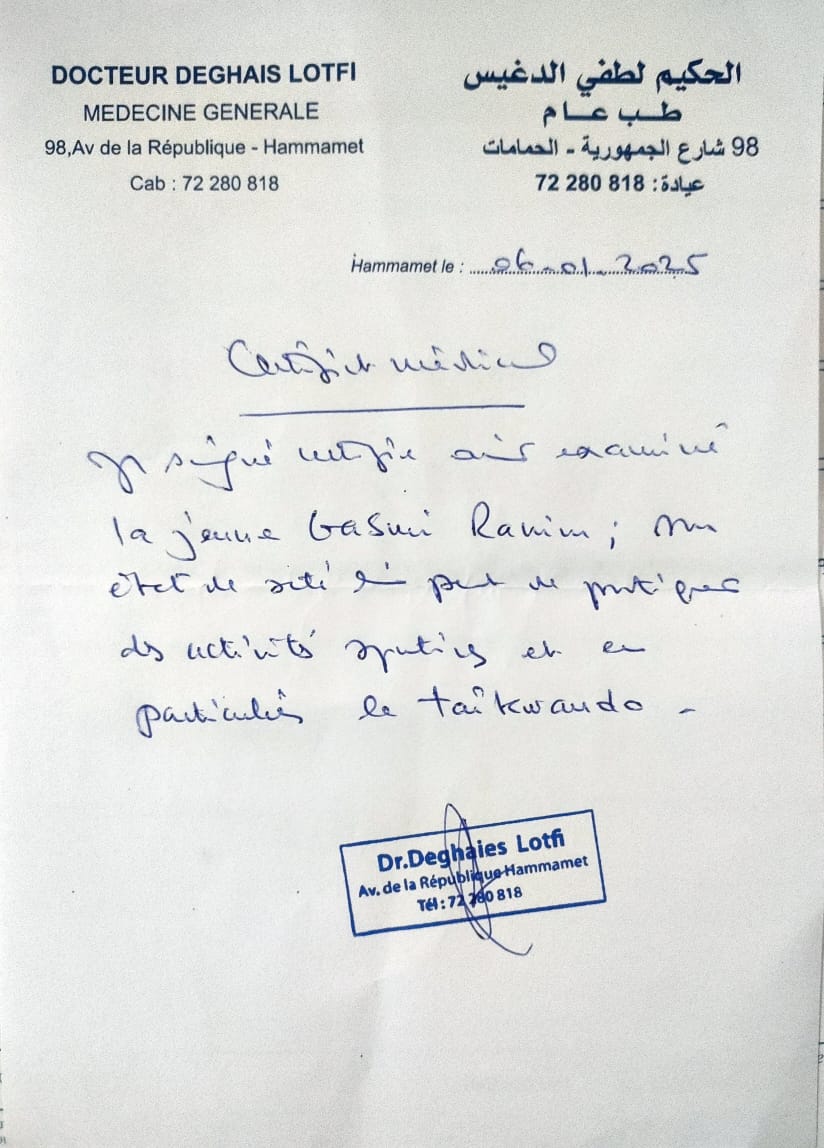 DOCTEUR DEGHAIS LOTFI
MEDECINE GENERALE
98,Av de la République - Hammamet
Cab : 72 280 818
الحكيم لطفي الدغيس
طب عام
98 شارع الجمهورية - الحمامات
عيادة: 818 280 72
Hammamet le : 06-01-2025
Certificat médical
signé certifie avoir examiné
la jeune Gasmi Ranim ; son
état de santé lui permet de pratiquer
des activités sportives et en
particulier le taîkwando -
Dr.Deghaies Lotfi
Av. de la République-Hammamet
Tél : 72 280 818